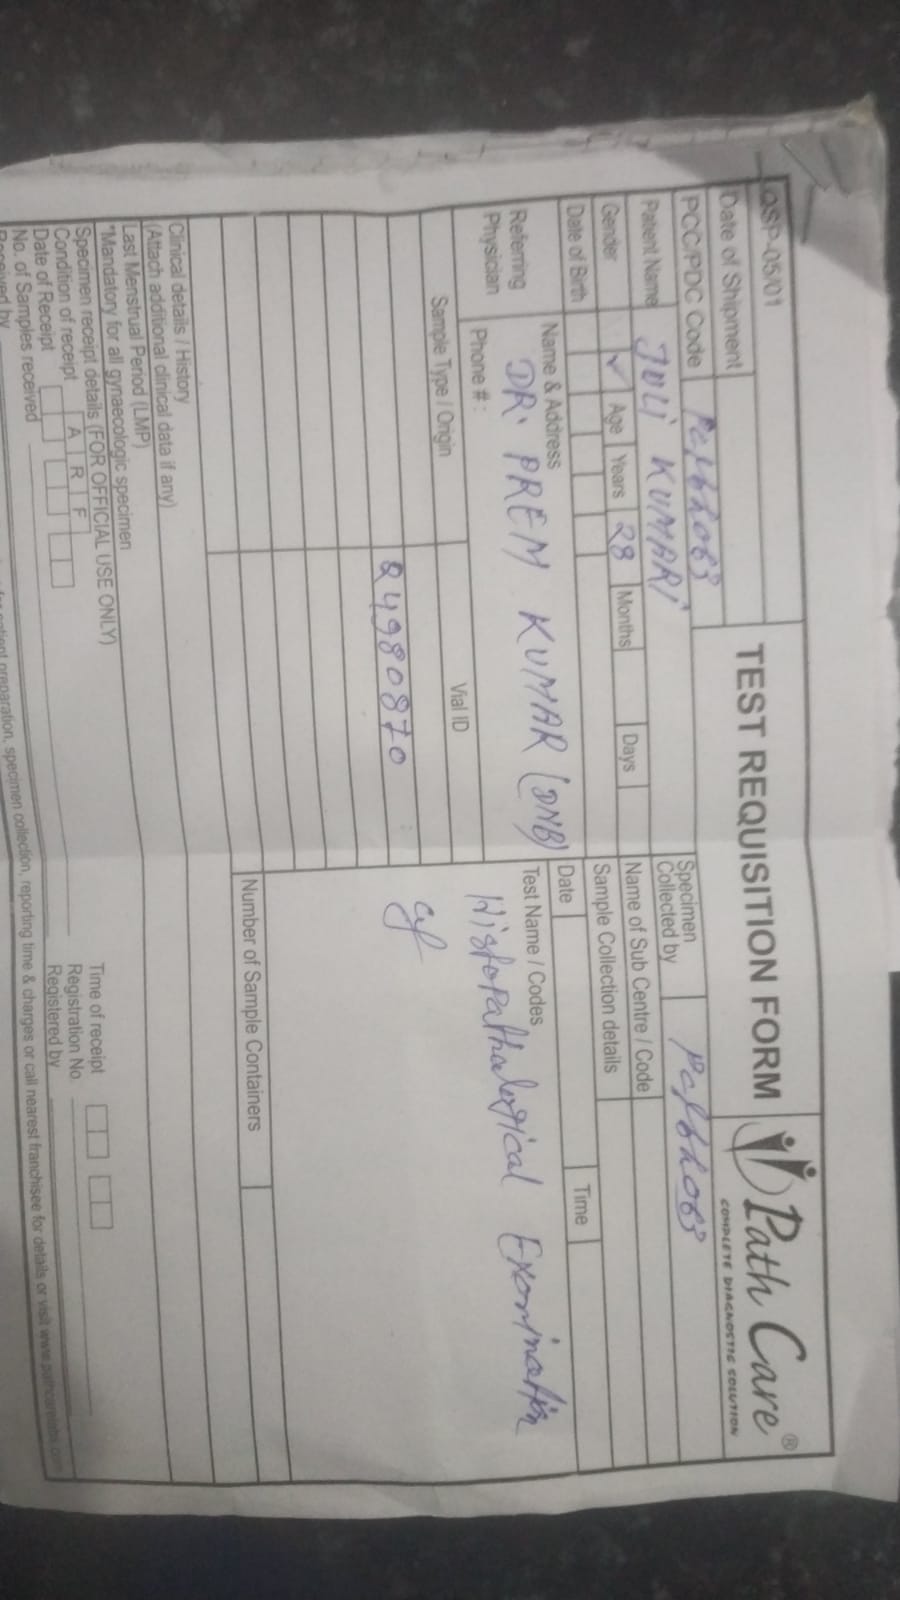 QSP-05/01
TEST REQUISITION FORM
Path Care®
COMPLETE DIAGNOSTIC SOLUTION
Date of Shipment
PCC/PDC Code
Specimen Collected by
Patient Name JULI KUMARI
Name of Sub Centre / Code
Gender ✓ Age Years 28 Months Days
Sample Collection details
Date of Birth
Date Time
Referring Physician
Name & Address
DR. PREM KUMAR (DNB)
Phone # :
Test Name / Codes
Histopathological Examination
Sample Type / Origin Vial ID
Q4980870
Number of Sample Containers
Clinical details / History
(Attach additional clinical data if any)
Last Menstrual Period (LMP)
*Mandatory for all gynaecologic specimen
Specimen receipt details (FOR OFFICIAL USE ONLY)
Condition of receipt A R F
Time of receipt
Date of Receipt
Registration No.
No. of Samples received
Registered by
Received by
patient preparation, specimen collection, reporting time & charges or call nearest franchisee for details or visit